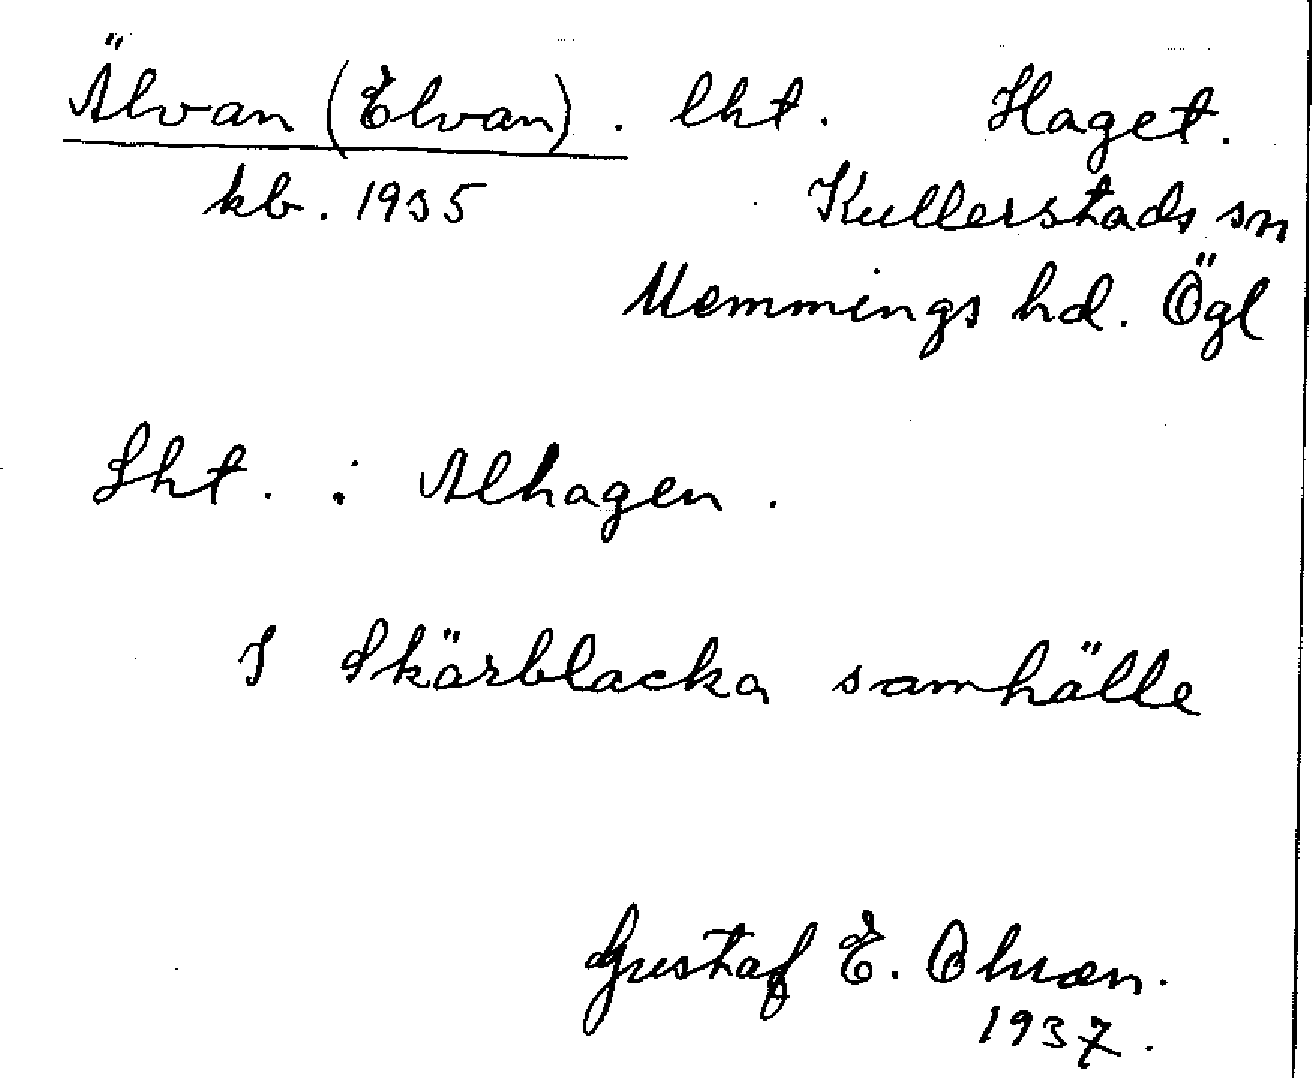 Älvan (Elvan). lht. Haget.
kb. 1935 Kullerstads sn
Memmings hd. Ögl
Lht. : Alhagen.
I Skärblacka samhälle
Gustaf E. Olsson.
1937.